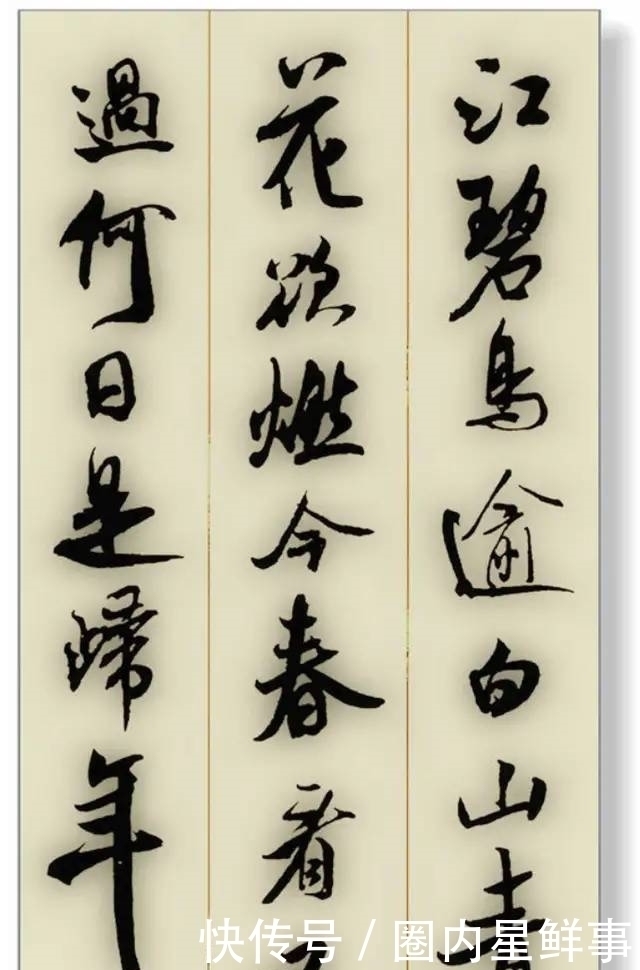 江碧鳥逾白山青
花欲燃今春看
過何日是歸年
快传号/圈内星鲜事